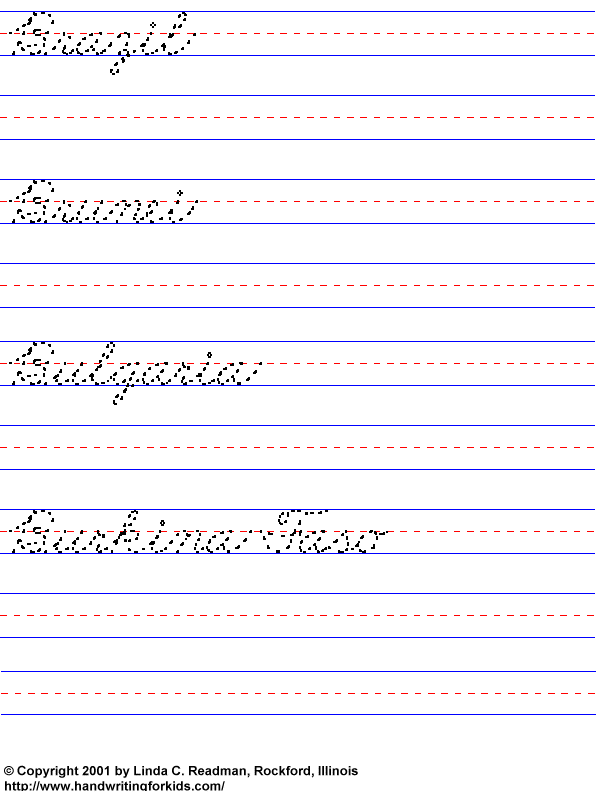 Brazil
Brunei
Bulgaria
Burkina Faso
© Copyright 2001 by Linda C. Readman, Rockford, Illinois
http://www.handwritingforkids.com/